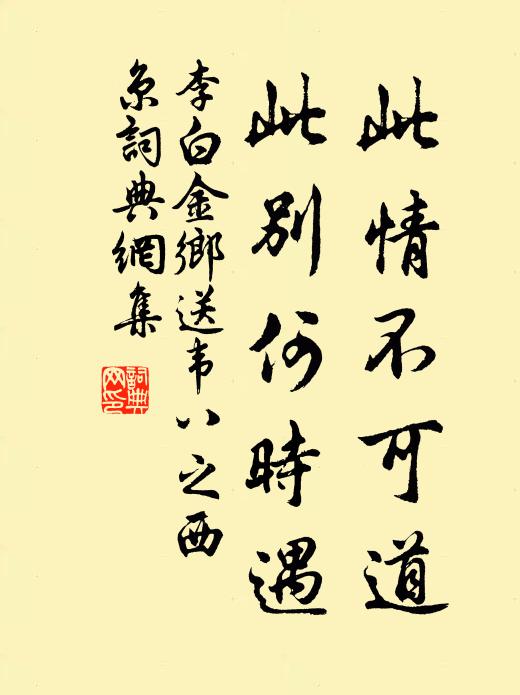 此情不可道
此別何時遇
李白金鄉送韦八之西
京詞典網集
詞典
网印